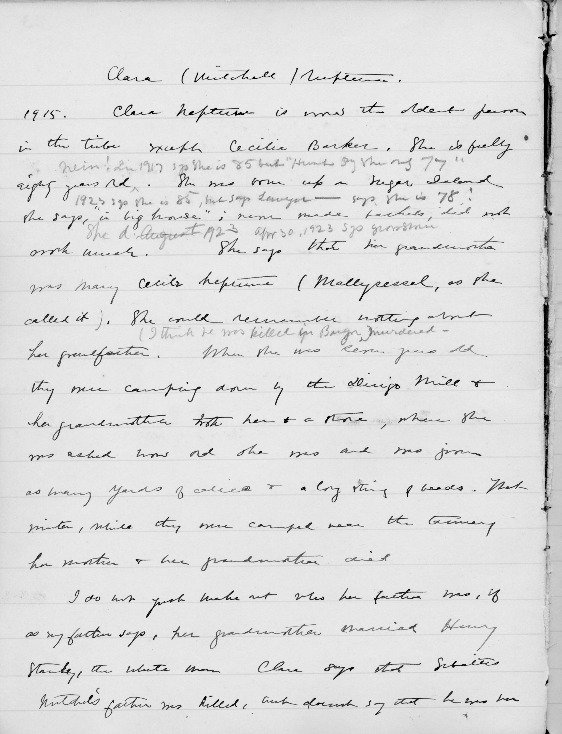 Clara (Mitchell) Neptune.
1915. Clara Neptune is now the oldest person
in the tribe except Cecilia Barker. She is fully
in 1917 sys she is 85 but "
eighty years old. She was born up on Sugar Island
1923 sys she is 85, but says Lawyer — says she is 78!
she says, "in big house"; never made baskets, did not
She d. August 1923 Apr 30, 1923 sys
work much. She says that her grandmother
was Mary Neptune (Mollypessel, as she
called it). She could remember nothing about
(I think he was killed in Bangor, murdered —
her grandfather. When she was seven years old
they were camping down by the Dirigo Mill &
her grandmother took her to a store, where she
was asked how old she was and was given
as many yards of calico & a long string of beads. That
winter, while they were camped near the Tannery
her mother & her grandmother died
I do not quite make out who her father was, if
as my father says, her grandmother married Henry
Stanley, the white man. Clara says that
Mitchell's father was killed, but doesnt say that he was her